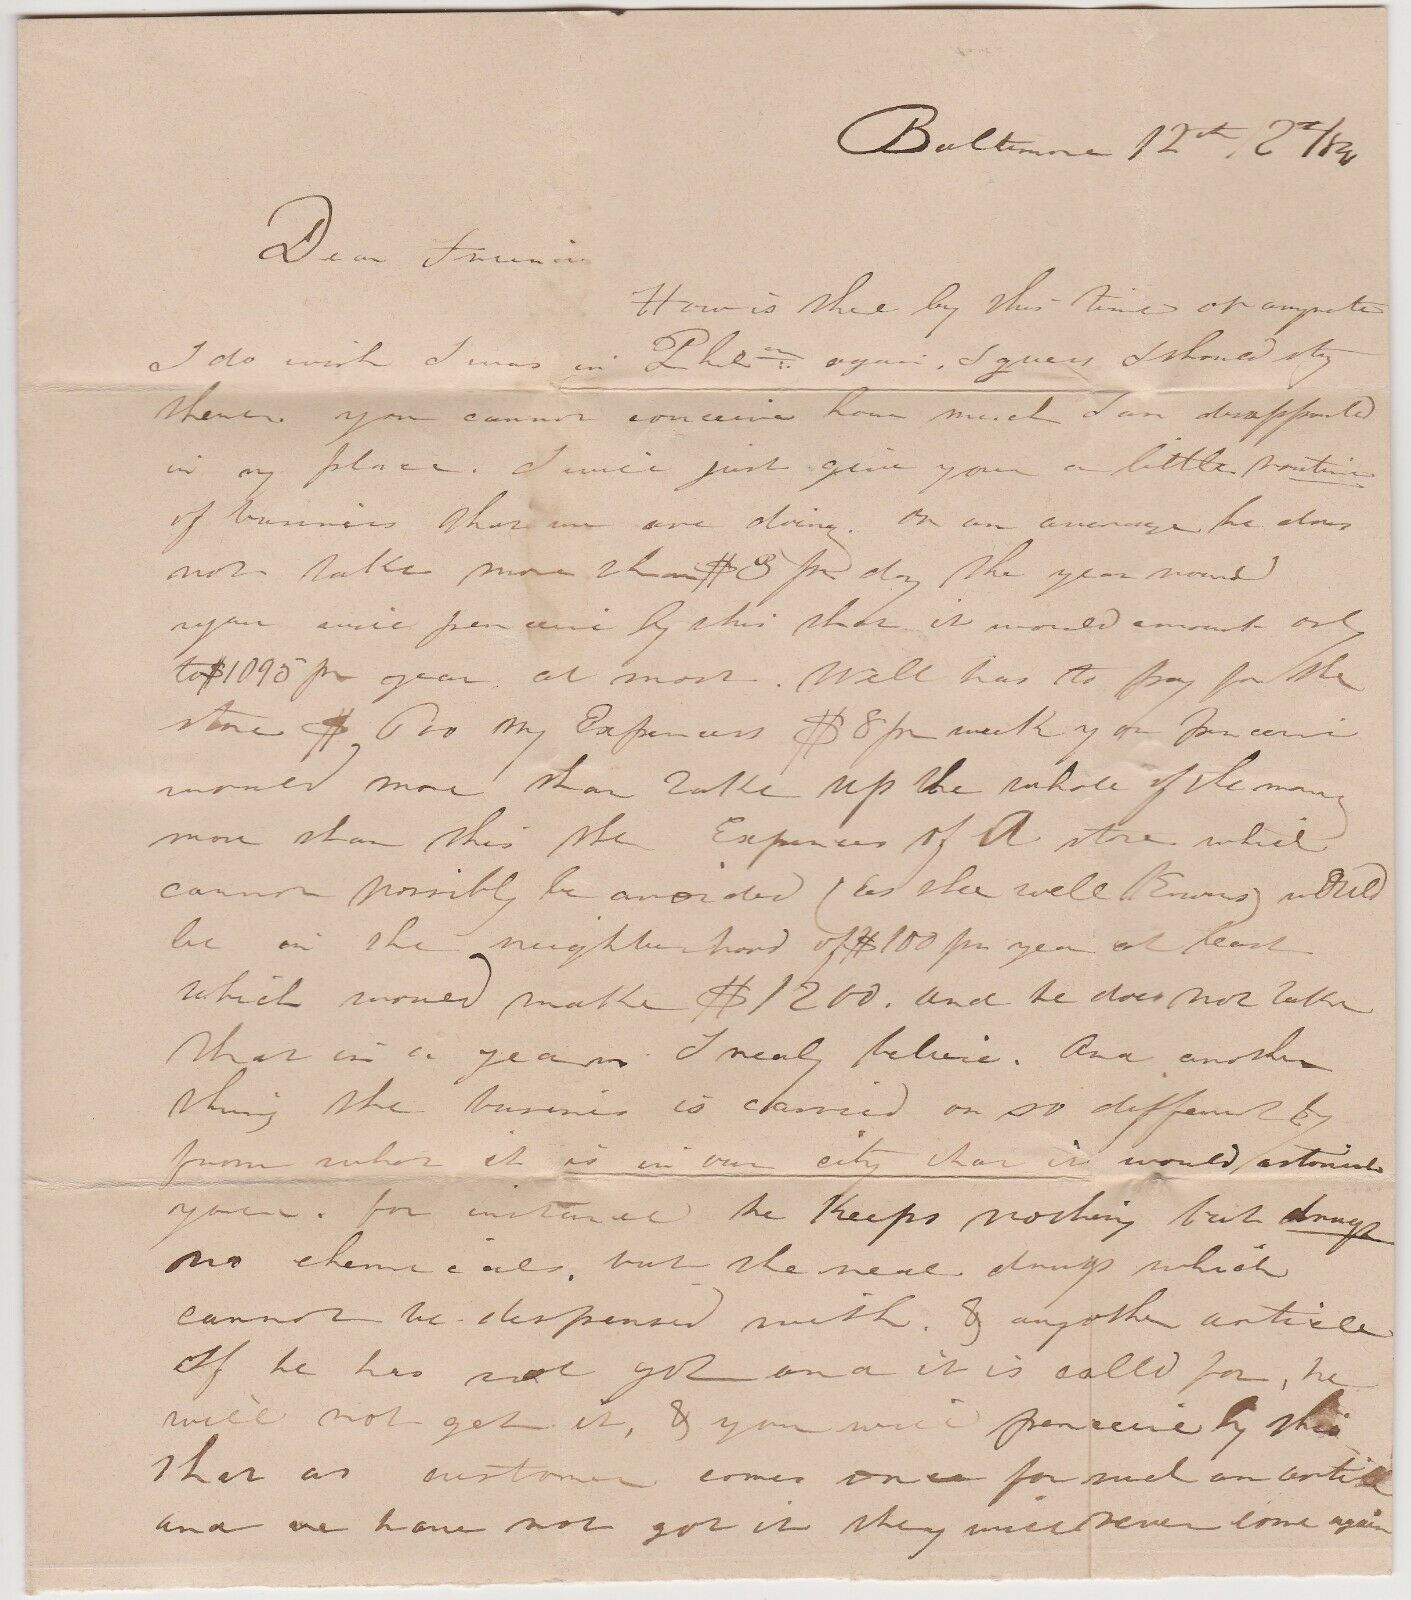 Baltimore 12th
Dear
How is thee by this time at anyrate
I do wish I was in again, I guess I should stay
there. you cannot conceive how much I am disappointed
in my place. I will just give you a little routine
of business that we are doing. on an average he does
not take more than $3 pr day the year round
you will perceive by this that it would amount only
to $1095 pr year at most. Well has to pay for the
store $ My Expences $8 pr week you perceive
would more than take up the whole of the money
more than this the Expences of A store which
cannot possibly be avoided (as thee well knows) would
be in the neighbourhood of $100 pr year at least
which would make $1200. and he does not take
that in a year I realy believe. And another
thing the business is carried on so differently
from what it is in our city that it would astonish
you. for instance he keeps nothing but drugs
no chemicals, but the real drugs which
cannot be dispensed with. & any other article
If he has not got and it is calld for, he
will not get it, & you will perceive by this
that as customer comes once for such an article
and we have not got it they will never come again